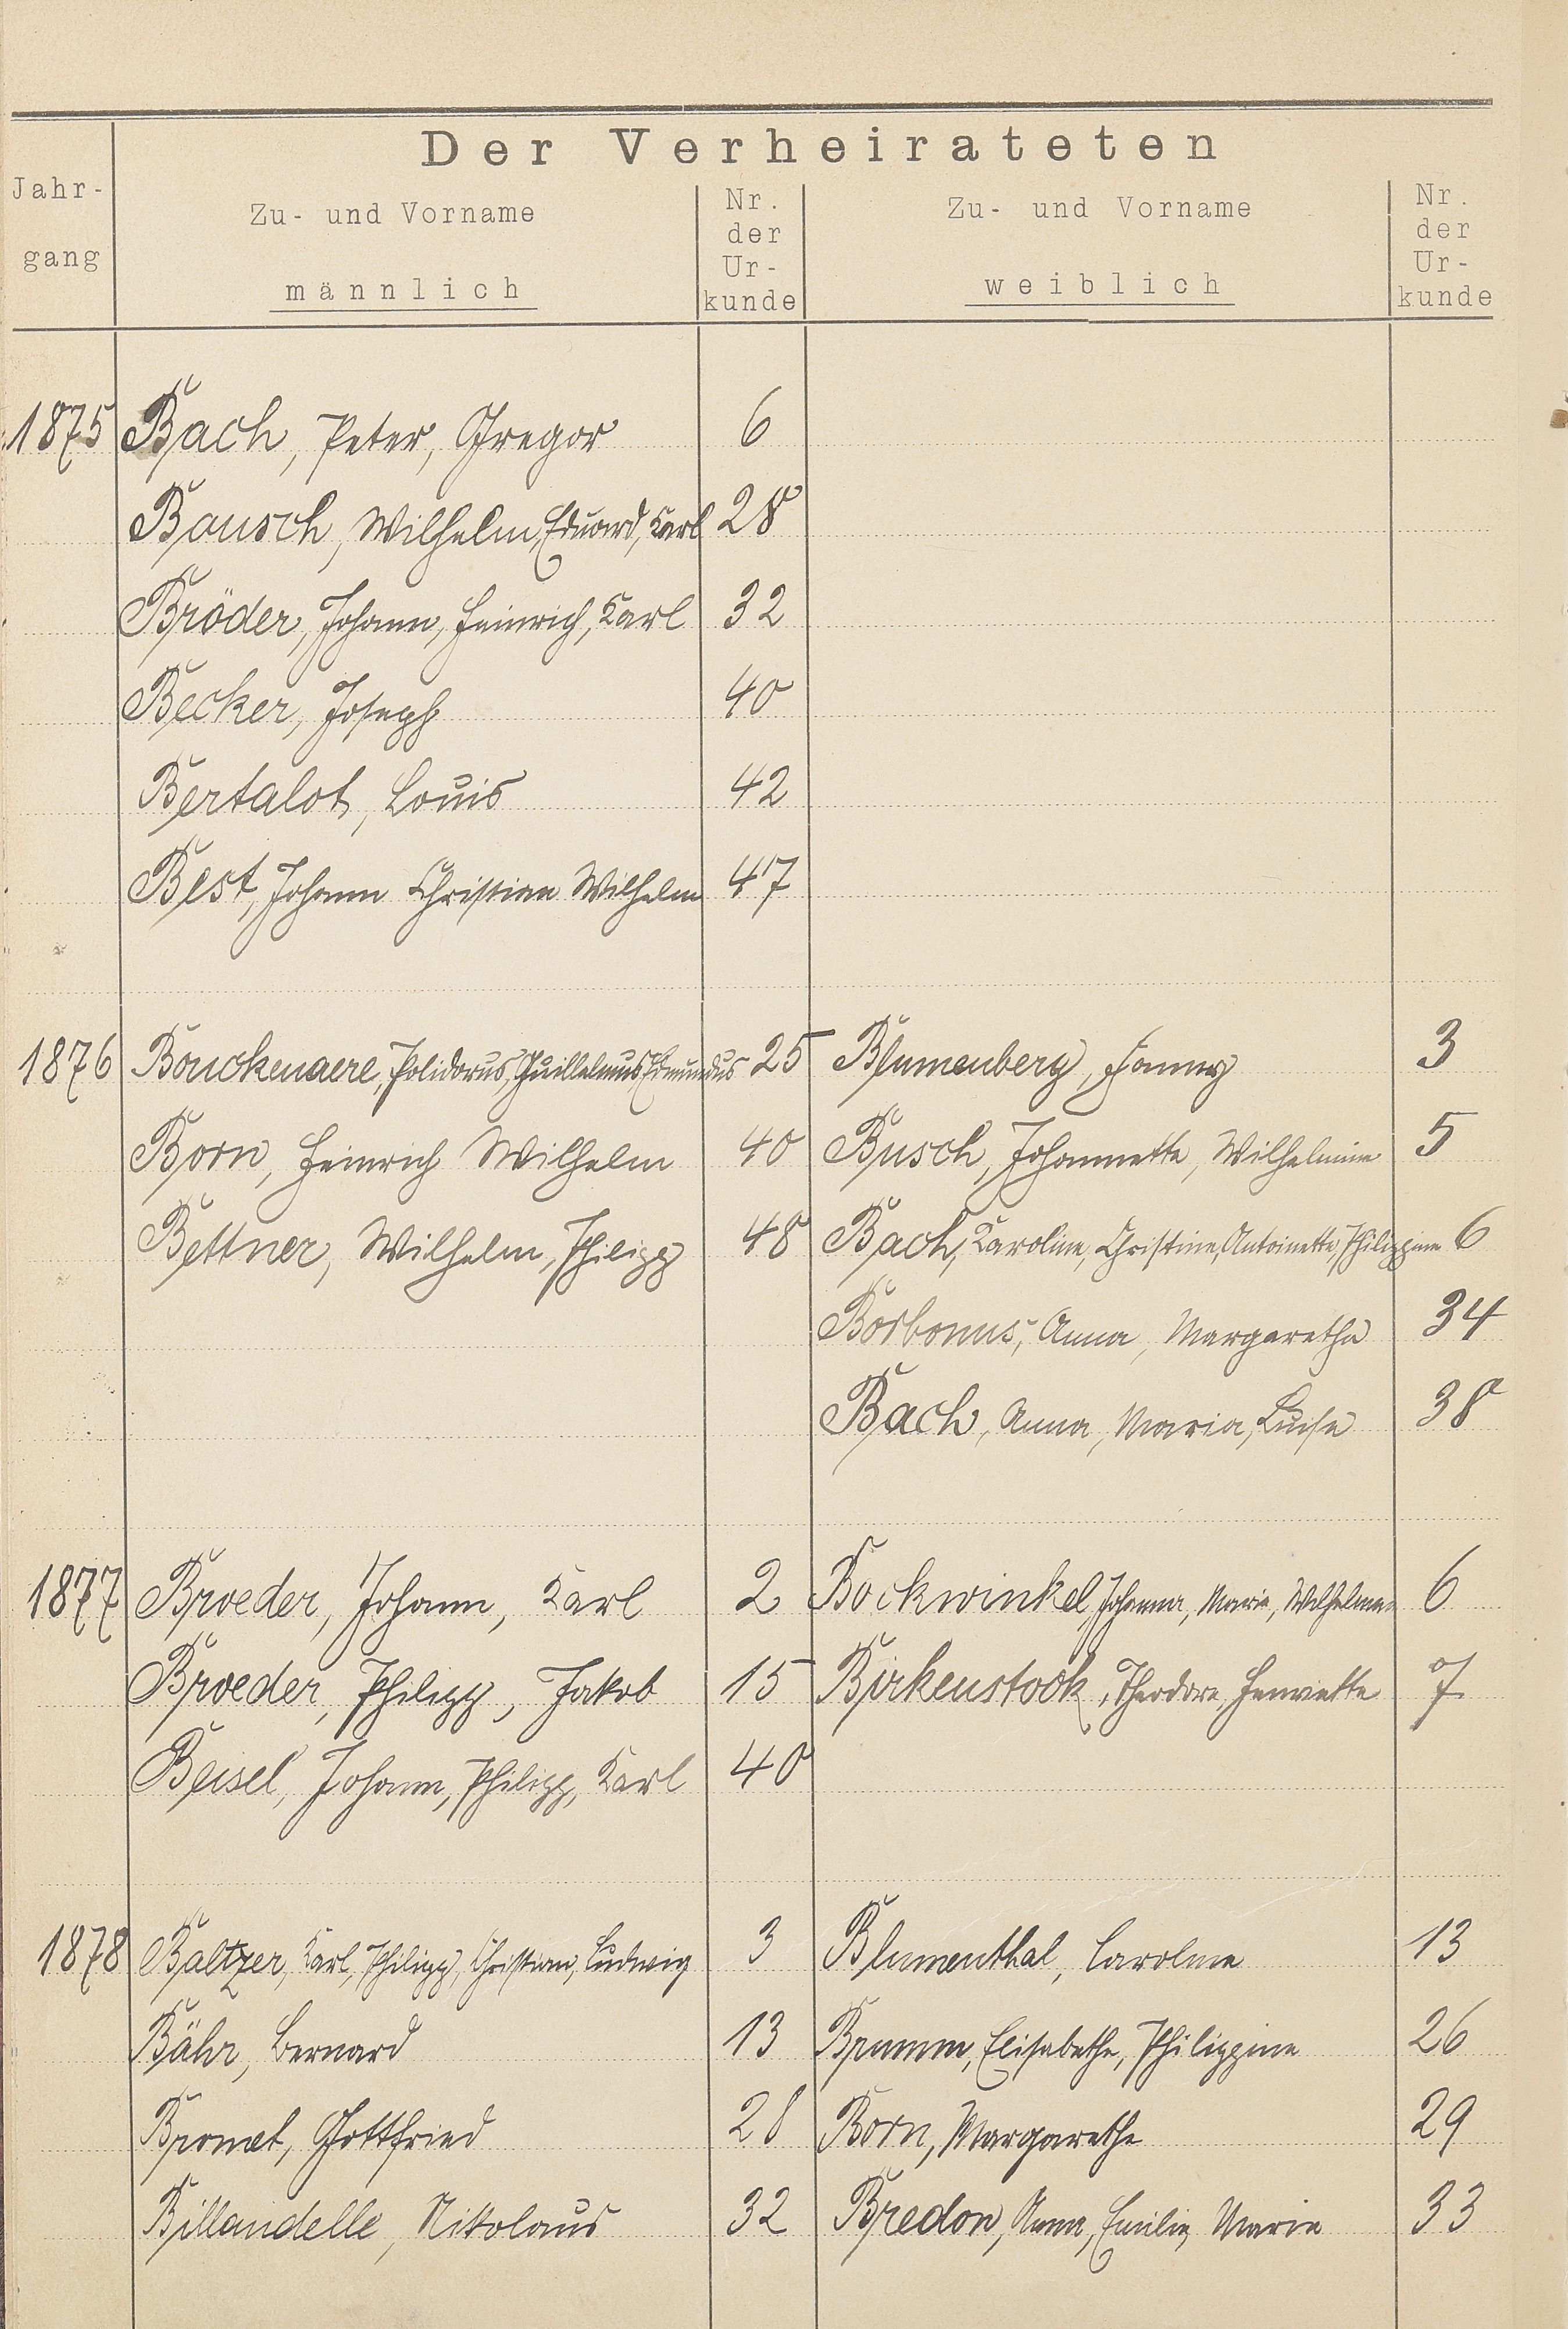 Der Verheirateten
Jahr-gang | Zu- und Vorname männlich | Nr. der Ur-kunde | Zu- und Vorname weiblich | Nr. der Ur-kunde
1875 Bach, Peter, Gregor 6
Bausch, Wilhelm, Eduard, Karl 28
Bröder, Johann, Heinrich, Karl 32
Becker, Joseph 40
Bertalot, Louis 42
Best, Johann Christian Wilhelm 47
1876 Bouckenaere, Polidorus, Guillelmus, Edmundus 25 Blumenberg, Fanny 3
Born, Heinrich Wilhelm 40 Busch, Johannette, Wilhelmine 5
Bettner, Wilhelm, Philipp 48 Bach, Karoline, Christine, Antoinette, Philippine 6
Borbonus, Anna, Margaretha 34
Bach, Anna, Maria, Luise 38
1877 Broeder, Johann, Karl 2 Bockwinkel, Johanna, Marie, Wilhelmine 6
Broeder, Philipp, Jakob 15 Birkenstock, Theodore, Henriette 7
Beisel, Johann, Philipp, Karl 40
1878 Baltzer, Karl, Philipp, Christian, Ludwig 3 Blumenthal, Caroline 13
Bähr, Bernard 13 Brumm, Elisabethe, Philippine 26
Bromet, Gottfried 28 Born, Margarethe 29
Billaudelle, Nikolaus 32 Bredon, Anna, Emilie, Marie 33